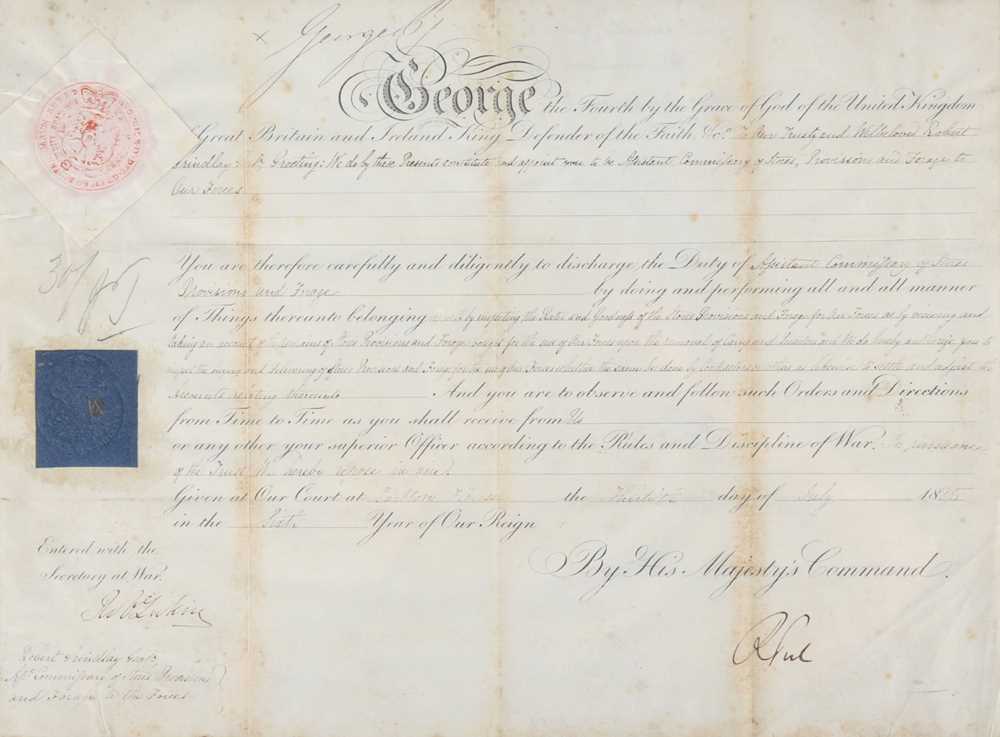 x George R
George the Fourth by the Grace of God of the United Kingdom
of Great Britain and Ireland King, Defender of the Faith &c. To Our Trusty and Welbeloved Robert
Grindlay Gent. Greeting: We do by these Presents constitute and appoint you to be Assistant Commissary of Stores, Provisions and Forage to
Our Forces
You are therefore carefully and diligently to discharge the Duty of Assistant Commissary of Stores
Provisions and Forage by doing and performing all and all manner
of Things thereunto belonging as well by inspecting the Rates and Goodness of the Stores Provisions and Forage for Our Forces as by receiving and
taking an account of the remains of Stores Provisions and Forage for the use of Our Forces upon the removal of Camps and Quarters and We do hereby authorize you to
the issuing and delivering of Stores Provisions and Forage for the use of Our Forces whether the same be done by Contractors or to settle and adjust
Accounts relating thereunto. And you are to observe and follow such Orders and Directions
from Time to Time as you shall receive from Us
or any other your superior Officer according to the Rules and Discipline of War, In pursuance
of the Trust We hereby repose in you.
Given at Our Court at Carlton House the Thirtieth day of July 1825
in the Sixth Year of Our Reign
Entered with the
Secretary at War.
By His Majesty's Command.
Robert Grindlay Gent.
Asst. Commissary of Stores Provisions
and Forage to the Forces